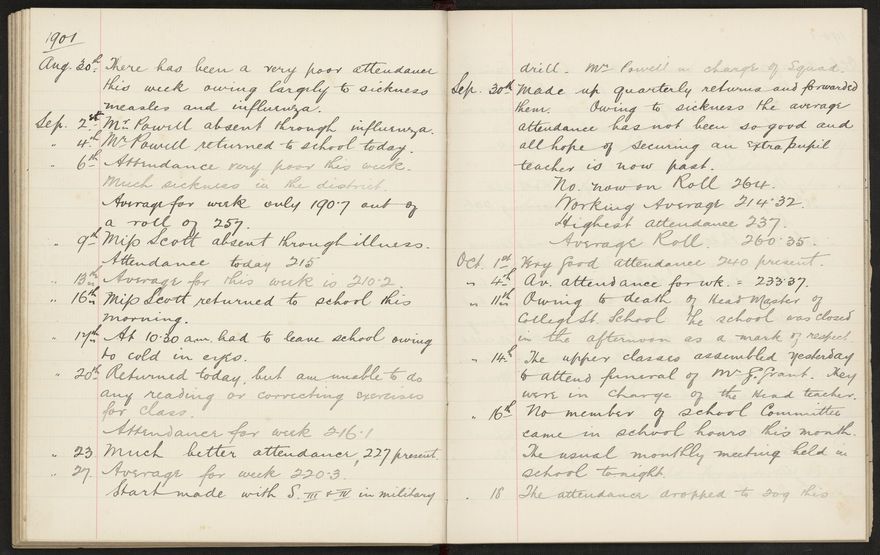 1901
Aug. 30th There has been a very poor attendance
this week owing largely to sickness
measles and influenza.
Sep. 2nd Mr. Powell absent through influenza.
" 4th Mr Powell returned to school today.
" 6th Attendance very poor this week.
Much sickness in the district.
Average for week only 190.7 out of
a roll of 257.
" 9th Miss Scott absent through illness.
Attendance today 215
" 13th Average for this week is 210.2.
" 16th Miss Scott returned to school this
morning.
" 17th At 10.30 a.m. had to leave school owing
to cold in eyes.
" 20th Returned today, but am unable to do
any reading or correcting exercises
for class.
Attendance for week 216.1
" 23 Much better attendance, 227 present.
" 27. Average for week 220.3.
Start made with S. III & IV in military
drill. Mr Powell in charge of Squad.
Sep. 30th Made up quarterly returns and forwarded
them. Owing to sickness the average
attendance has not been so good and
all hope of securing an extra pupil
teacher is now past.
No. now on Roll 264.
Working Average 214.32.
Highest attendance 237.
Average Roll. 260.35.
Oct. 1st Very good attendance 240 present.
" 4th Av. attendance for wk. = 233.37.
" 11th Owing to death of Head Master of
College St. School the school was closed
in the afternoon as a mark of respect
" 14th The upper classes assembled yesterday
to attend funeral of Mr G. Grant. They
were in charge of the Head teacher.
" 16th No member of school Committee
came in school hours this month.
The usual monthly meeting held in
school tonight.
" 18 The attendance dropped to 209 this